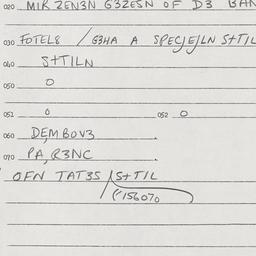 020 MIR ZEN3N G3ZESN OF D3 BAN
030 FOTEL8 / G3HA A SPECJEJLN S+TIL
040 S+TILN
050 O
051 O 052 O
060 DEMBOV3
070 PA,R3NC
OFN TAT3S / S+TIL
("156070